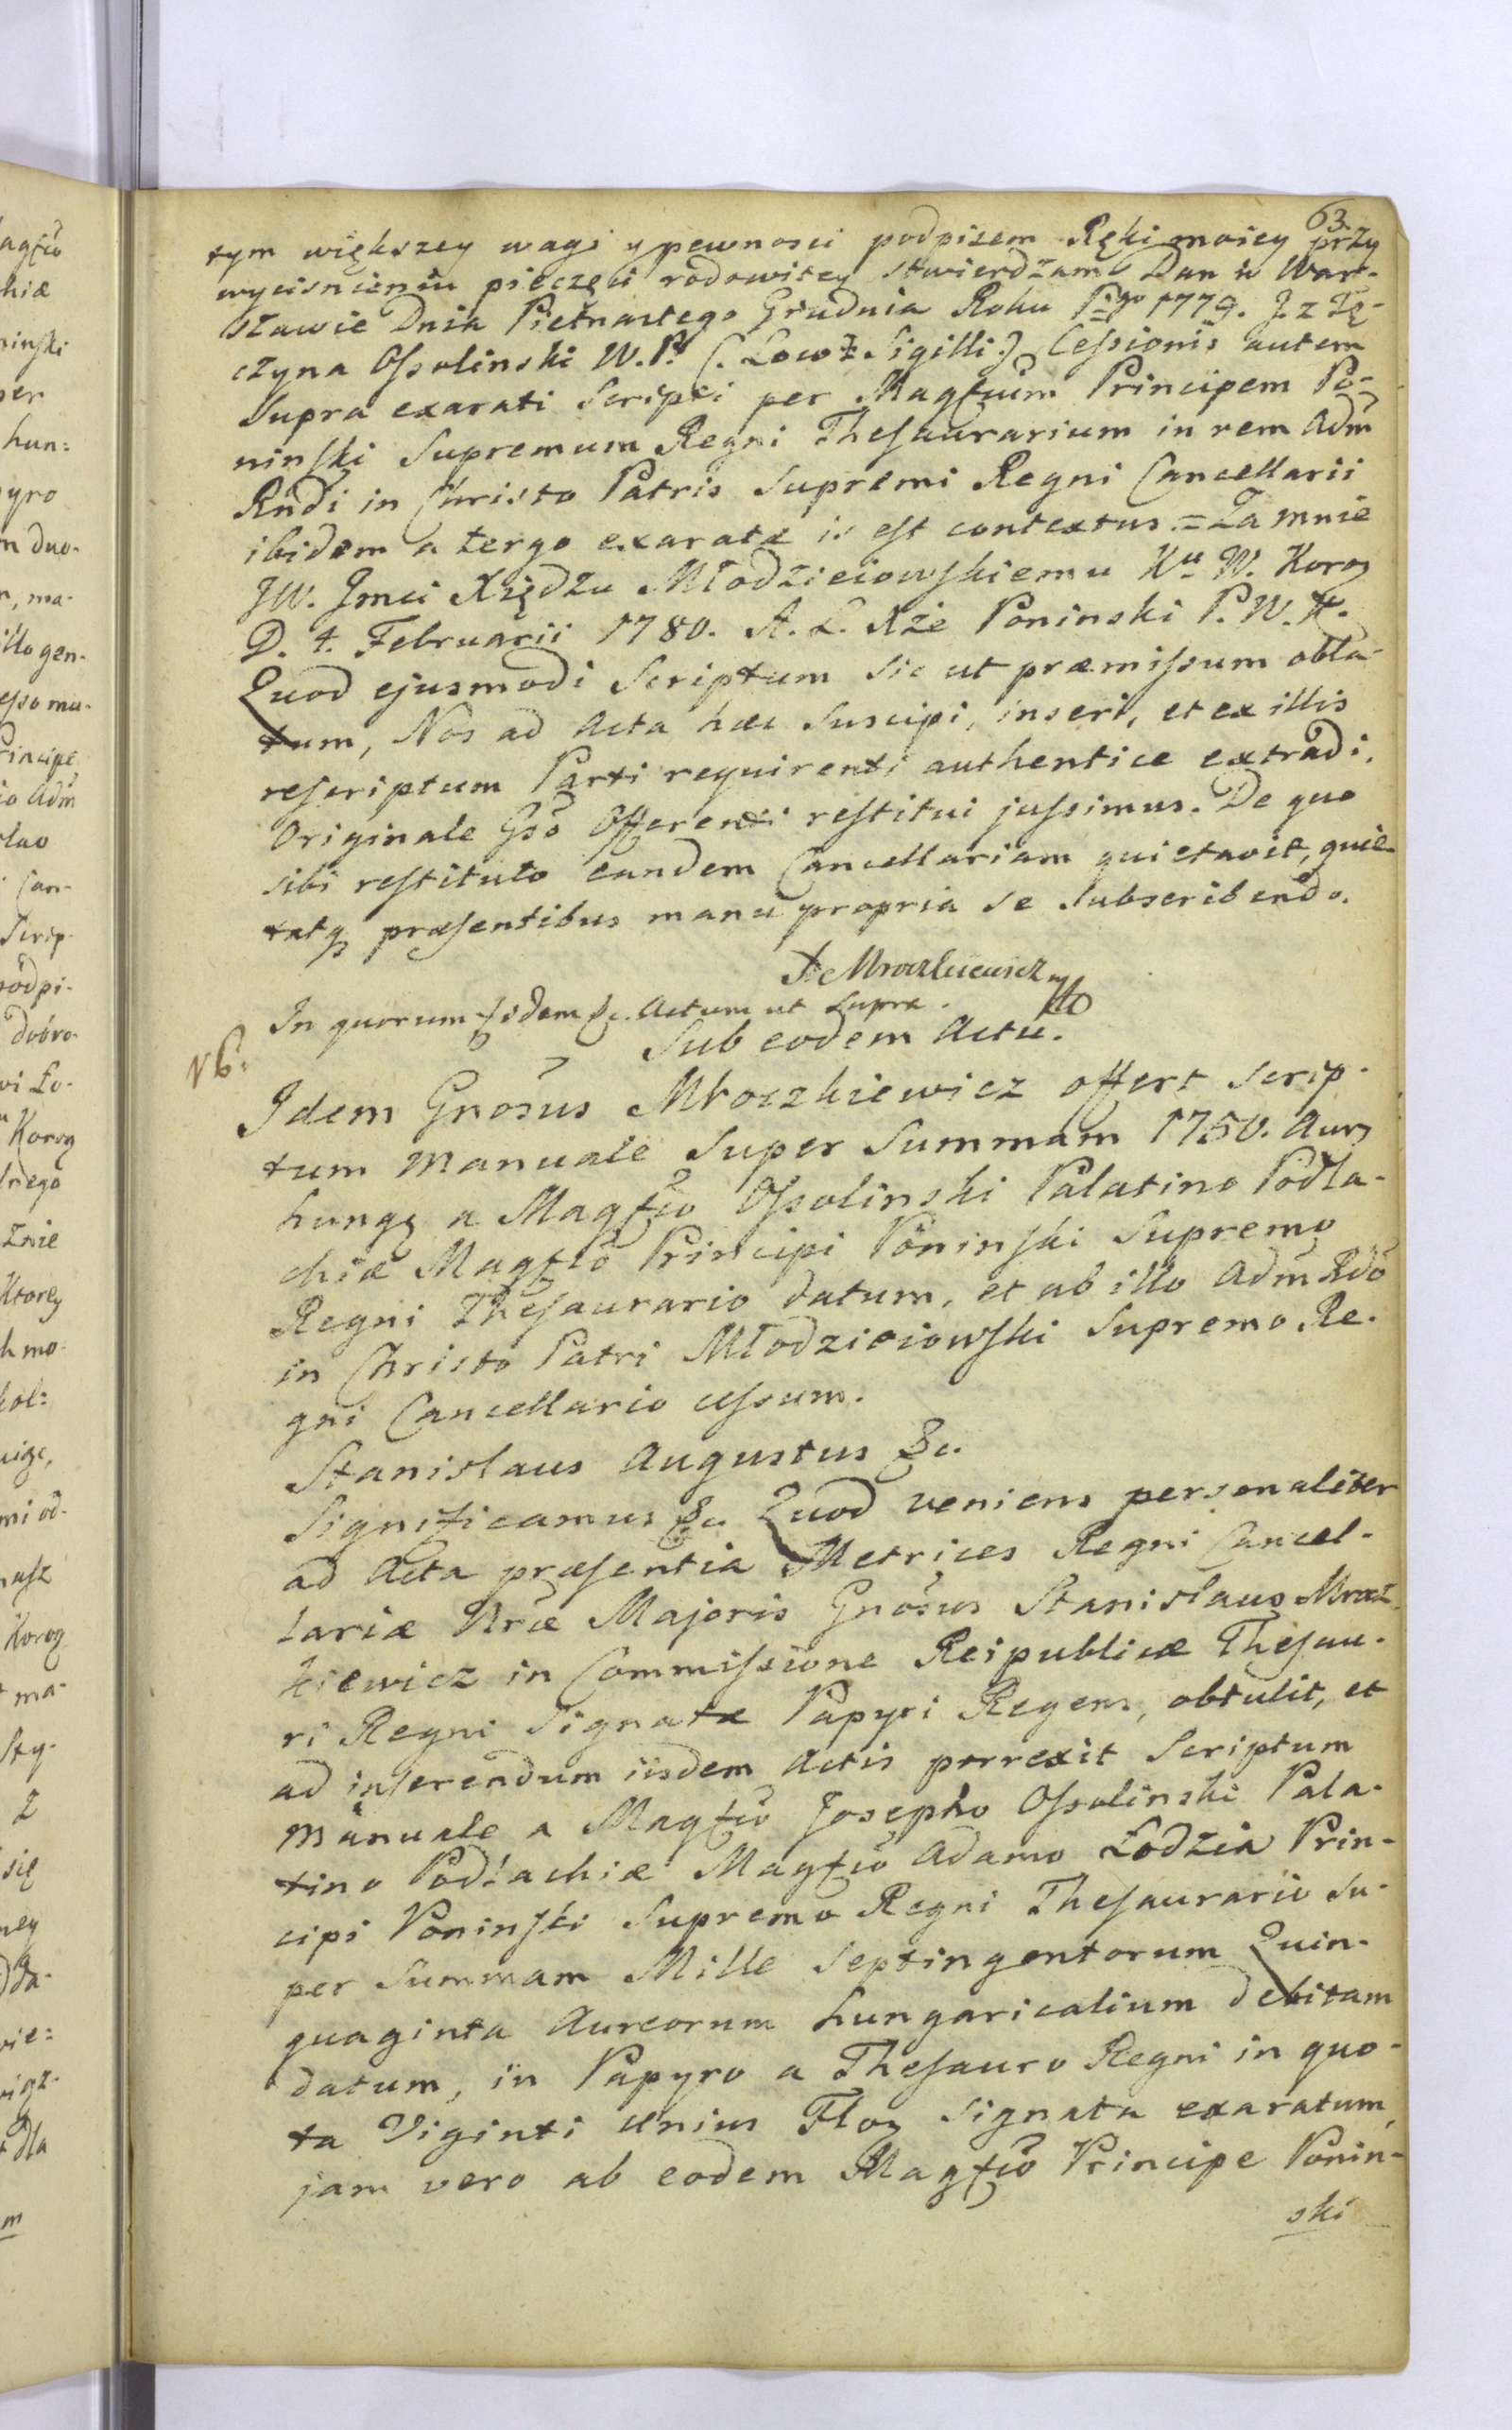 63.
tym większey wagi y pewnosci podpisem Ręki moiey przy
wycisnieniu pieczęci rodowitey stwierdzam Dan w War-
szawie Dnia Pietnastego Grudnia Roku Pgo 1779. J. z Tę-
czyna Ossolinski W. P. (: Locus Sigilli :) Cessionis autem
Supra exarati Scripti per Magfcum Principem Po-
ninski Supremum Regni Thesaurarium in rem Adm
Rndi in Christo Patris Supremi Regni Cancellarii
ibidem a tergo exaratæ is est contextus = Za mnie
JW. Jmci Xiędzu Młodzieiowskiemu Ku W. Koron
D. 4. Februarii 1780. A. L. Xże Poninski P. W. K.
Quod ejusmodi Scriptum sic ut præmissum obla-
tum, Nos ad Acta hæc suscipi, inseri, et ex illis
rescriptum Parti requirenti authentice extradi,
Originale Gso Offerenti restitui jussimus. De quo
sibi restituto eandem Cancellariam quietavit, quie-
tatq præsentibus manu propria se subscribendo.
S. Mroczkiewicz mp
In quorum fidem &c. Actum ut supra.
Sub eodem Actu.
NB:
Idem Gnosus Mroczkiewicz offert scrip-
tum manuale Super Summam 1750. Aur
hung a Magfco Ossolinski Palatino Podla-
chiæ Magfco Principi Poninski Supremo
Regni Thesaurario datum, et ab illo Adm Rdo
in Christo Patri Młodzieiowski Supremo Re-
gni Cancellario cessum.
Stanislaus Augustus &c.
Significamus &c. Quod veniens personaliter
ad Acta præsentia Metrices Regni Cancel-
lariæ Nræ Majoris Gnosus Stanislaus Mrocz-
kiewicz in Commissione Reipublicæ Thesau-
ri Regni Signatæ Papyri Regens, obtulit, et
ad inserendum iisdem Actis porrexit Scriptum
Manuale a Magfco Josepho Ossolinski Pala-
tino Podlachiæ Magfco Adamo Łodzia Prin-
cipi Poninski Supremo Regni Thesaurario su-
per Summam Mille Septingentorum Quin-
quaginta Aureorum hungaricalium debitam
datum, in Papyro a Thesauro Regni in quo-
ta Viginti unius Flor signata exaratum,
jam vero ab eodem Magfco Principe Ponin-
ski